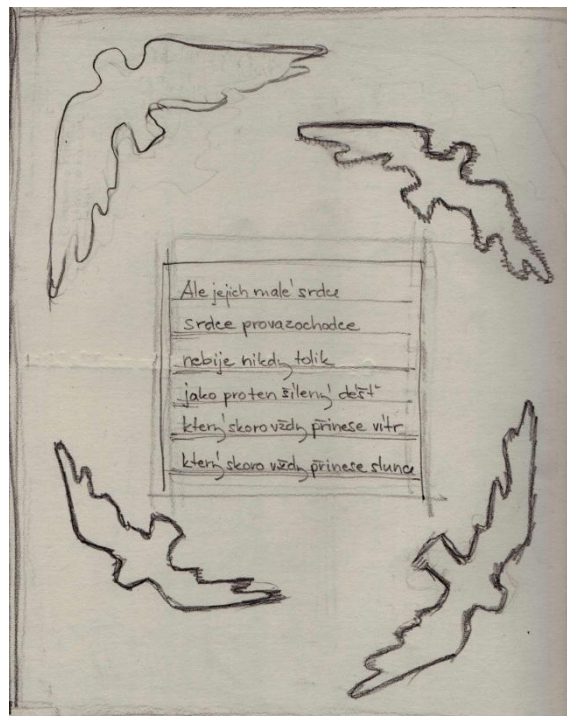 Ale jejich malé srdce
srdce provazochodce
nebije nikdy tolik
jako pro ten šílený déšť
který skoro vždy přinese vítr
který skoro vždy přinese slunce